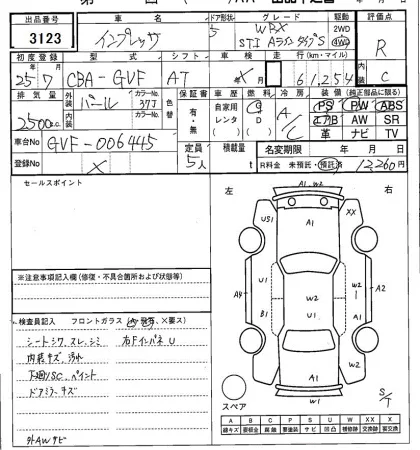 出品番号 車名 ドア形状 グレード 駆動 評価点
3123 インプレッサ 5 WRX STI Aライン タイプS 2WD 4WD R
初度登録 型式 シフト 車検 走行 (km・マイル)
25年 7月 CBA-GVF AT 年 X 月 61,254 C
排気量 外装 カラーNo. 色替 保証書 車歴 燃料 冷房 装備 (純正部品に限る)
2500cc パール 37J 有・無 自家用 レンタ G D A/C PS PW ABS
内装 カラーNo. エアB AW SR
革 ナビ TV
車台No GVF-006445 定員 積載量 名変期限 年 月 日
登録No X 5人 t R料金 未預託・預託 12,260円
セールスポイント 左 右
※注意事項記入欄 (修復・不具合箇所および状態等)
検査員記入 フロントガラス
シートシワ、スレ、シミ 右FインパネU
内装キズ、汚れ
下廻りSC、ペイント
ドアミラキズ
外AWサビ
A1, W2
US1 A1 XX
A4 U1 W2 A2
B1 U1
W2
A1
W1
W1
スペア S/T
A B C P S U W X XX
線キズ 凹 補修跡 交換跡 要交換